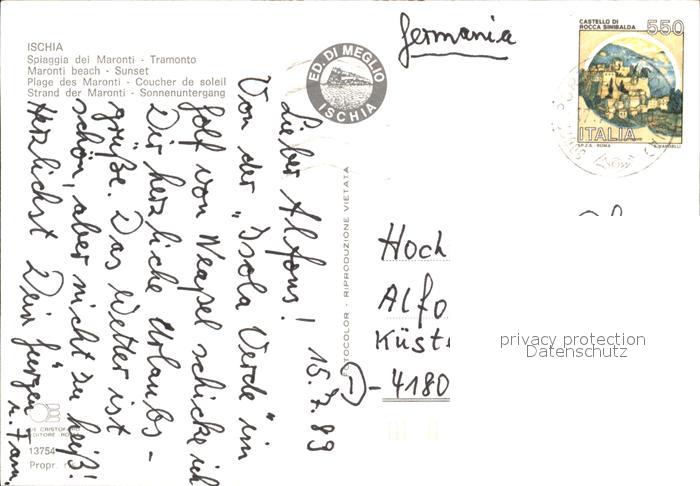 ISCHIA
Spiaggia dei Maronti - Tramonto
Maronti beach - Sunset
Plage des Maronti - Coucher de soleil
Strand der Maronti - Sonnenuntergang
ED. DI MEGLIO
ISCHIA
Germania
CASTELLO DI
ROCCA SINIBALDA
550
ITALIA
I.P.Z.S. - ROMA
15.7.89
Lieber Alfons!
Von der "Isola Verde" im
Golf von Neapel schicke ich
Dir herzliche Urlaubs-
grüße. Das Wetter ist
schön, aber nicht zu heiß!
Herzlichst Dein Jürgen
u. Fam.
FOTOCOLOR - RIPRODUZIONE VIETATA
Hoch
Alfo
Küst
D-4180
privacy protection
Datenschutz
13754
Propr.